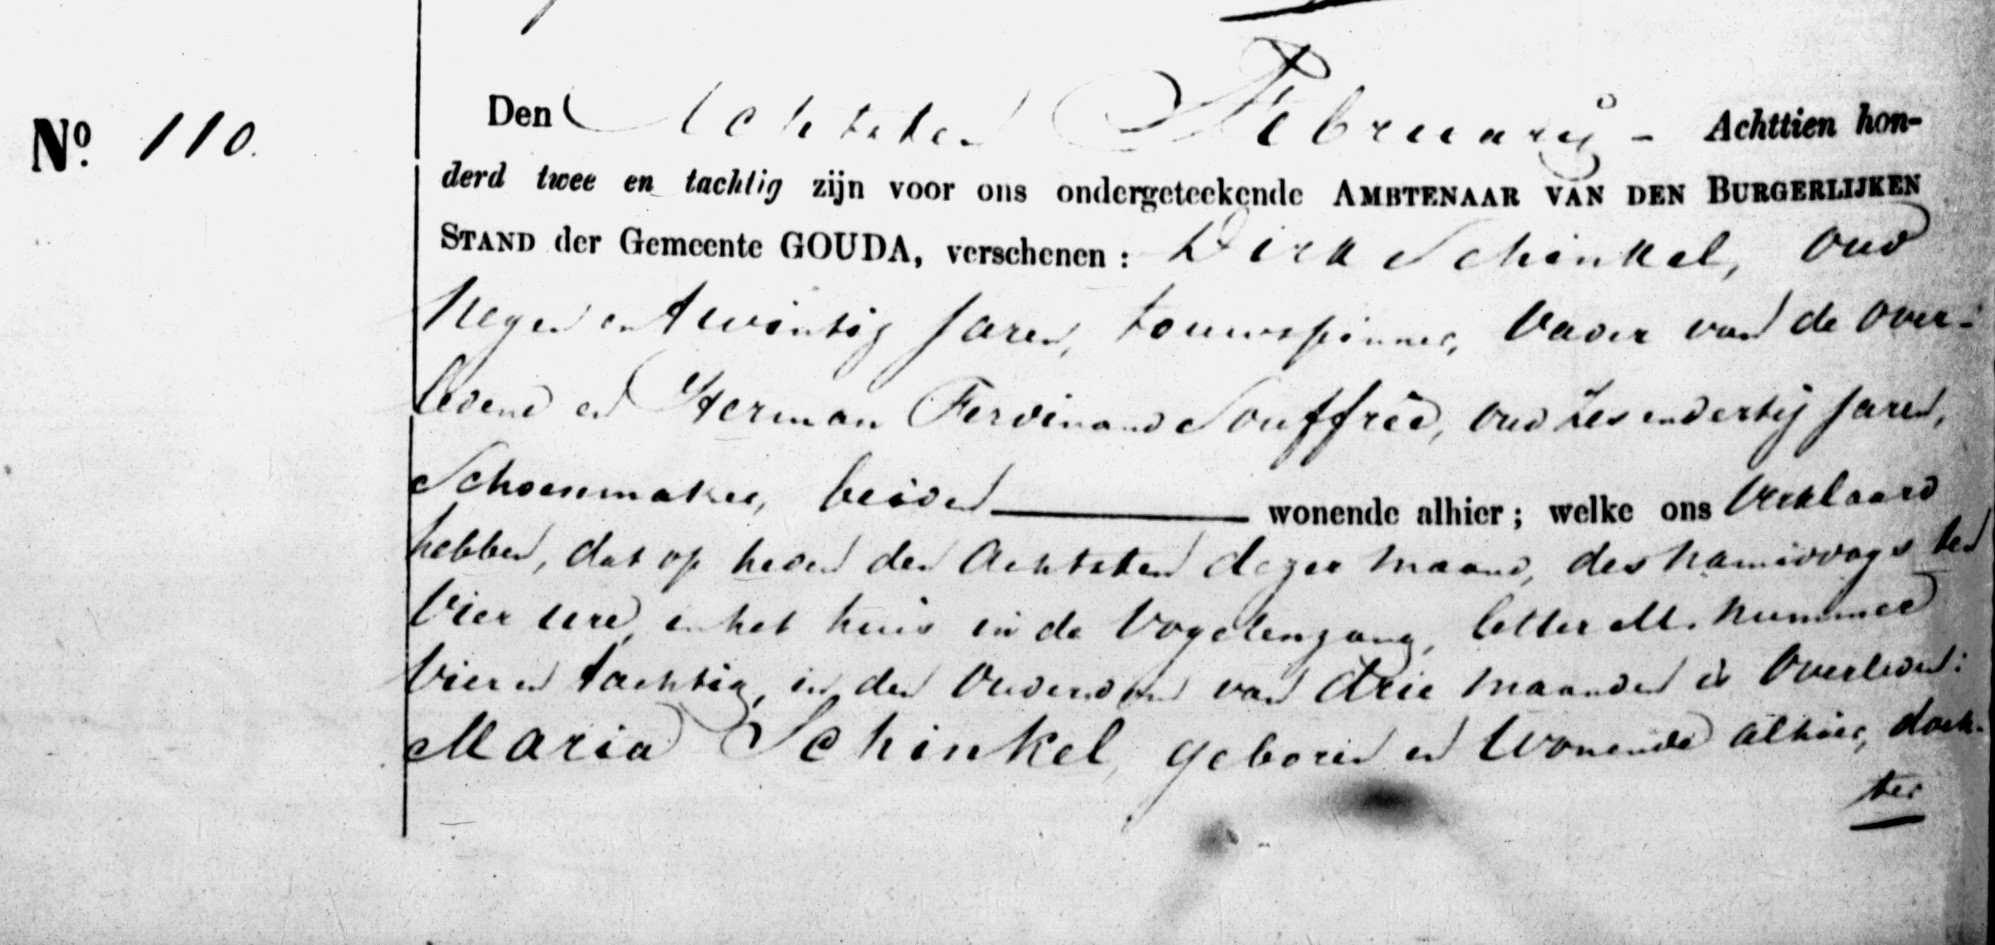 Nº. 110.
Den Achtsten February - Achttien hon-
derd twee en tachtig zijn voor ons ondergeteekende AMBTENAAR VAN DEN BURGERLIJKEN
STAND der Gemeente GOUDA, verschenen : Dirk Schinkel, oud
Negen en twintig Jaren, touwspinner, Vader van de over-
ledene en Herman Ferdinand Souffrée, oud zes en dertig Jaren,
Schoenmaker, beiden wonende alhier ; welke ons Verklaard
hebben, dat op heden den Achtsten dezer maand, des namiddags ten
Vier ure, in het huis in de Vogelenzang, letter M. nummer
Vier en tachtig, in den Ouderdom van drie maanden is Overleden:
Maria Schinkel, geboren en Wonende alhier, doch-
ter